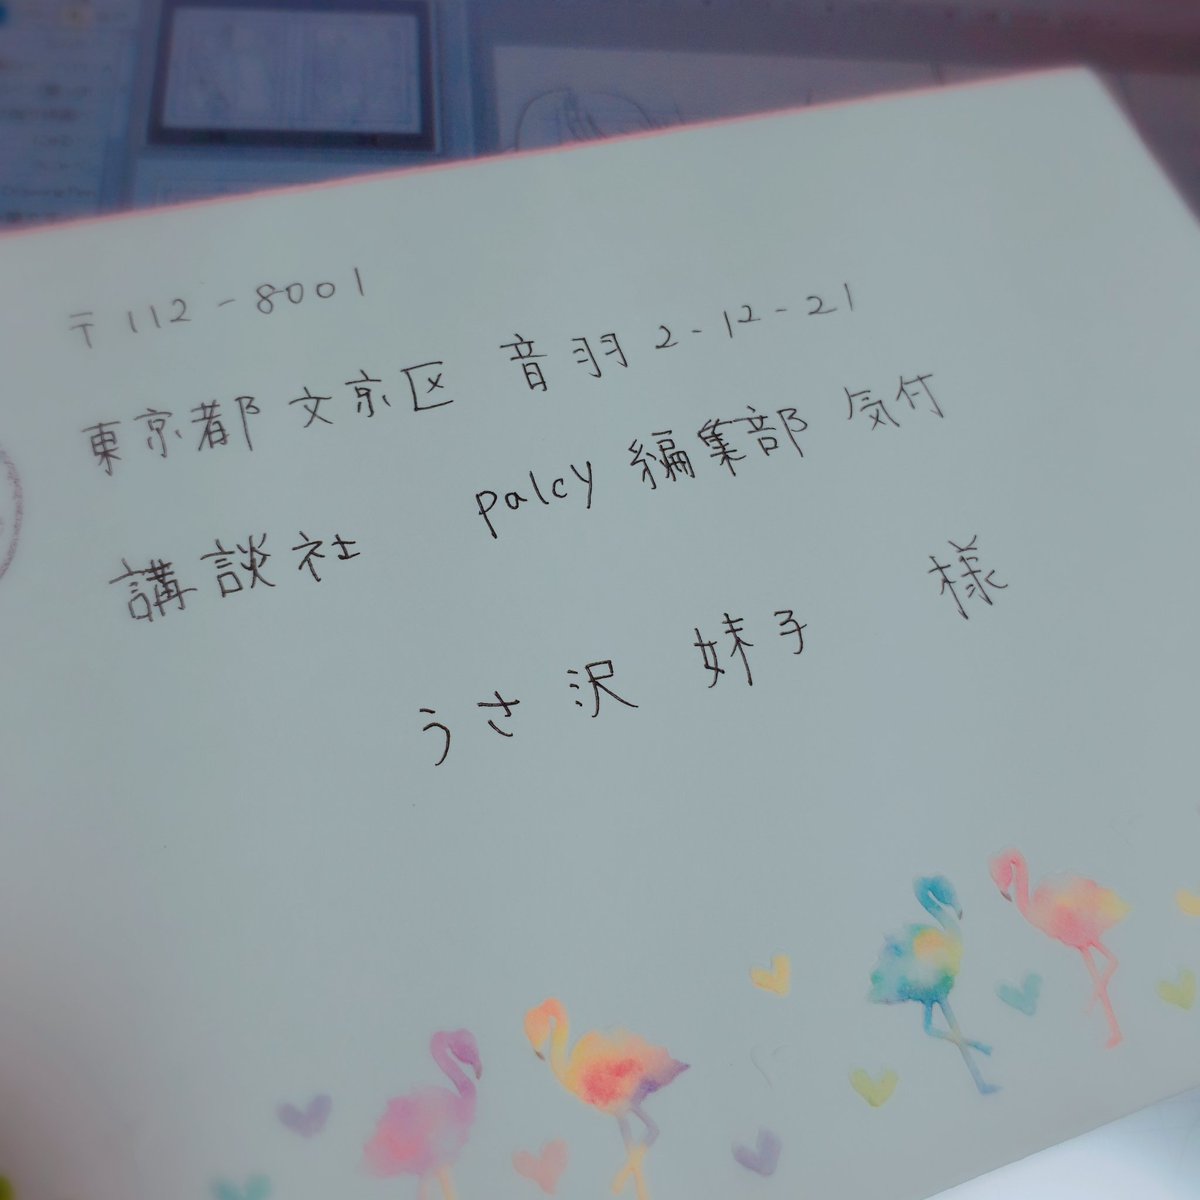 〒112-8001
東京都 文京区 音羽 2-12-21
講談社 palcy 編集部 気付
うさ沢 妹子 様